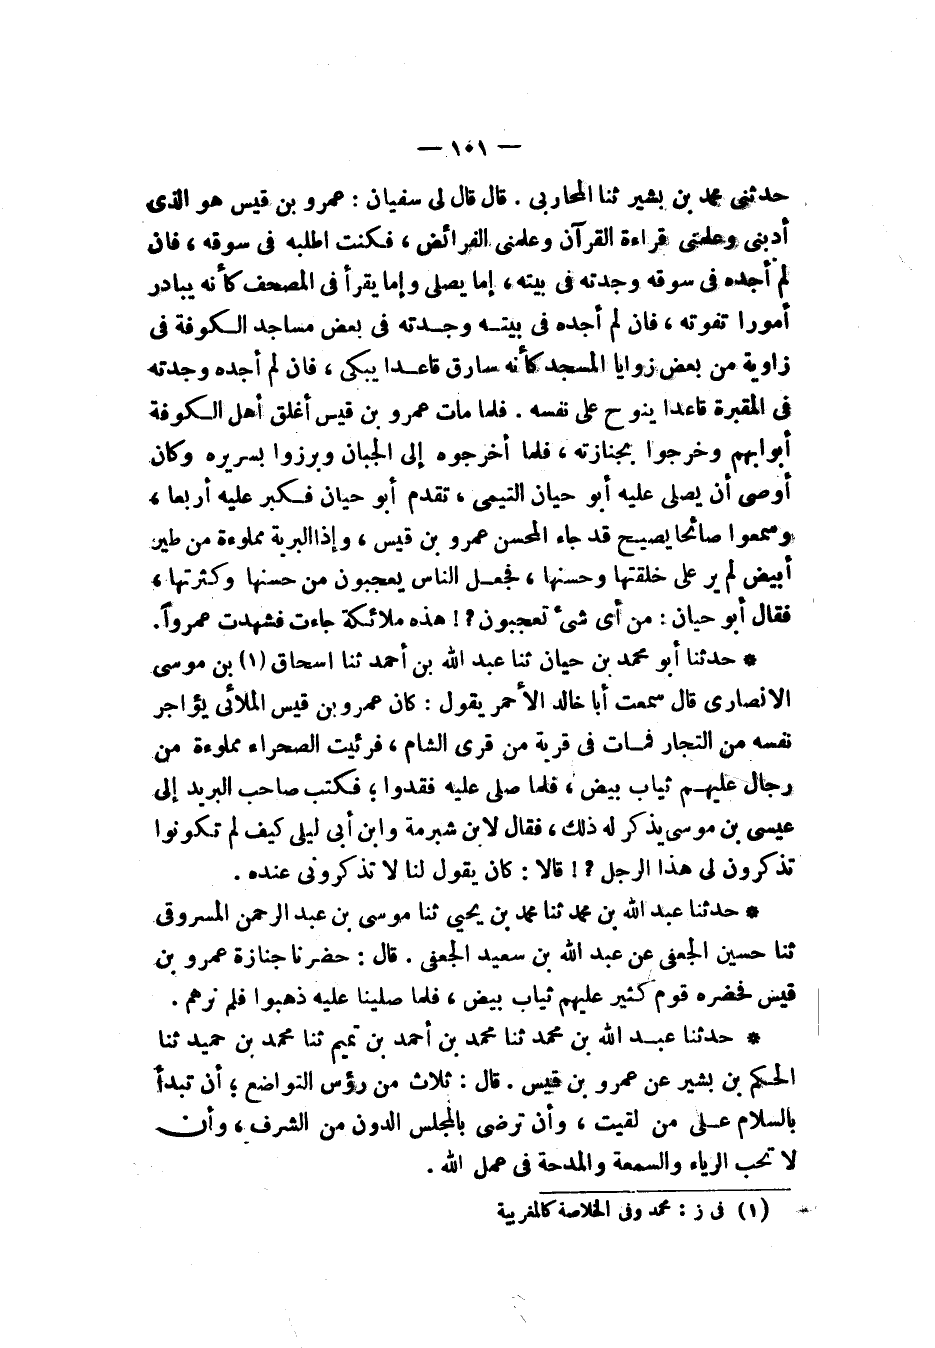 — ١٠١ —
حدثنى محمد بن بشير ثنا المحاربى . قال قال لى سفيان : عمرو بن قيس هو الذى
أدبنى وعلمنى قراءة القرآن وعلمنى الفرائض ، فكنت اطلبه فى سوقه ، فان
لم أجده فى سوقه وجدته فى بيته ، إما يصلى وإما يقرأ فى المصحف كأنه يبادر
أمورا تفوته ، فان لم أجده فى بيته وجدته فى بعض مساجد الكوفة فى
زاوية من بعض زوايا المسجد كأنه سارق قاعدا يبكى ، فان لم أجده وجدته
فى المقبرة قاعدا ينوح على نفسه . فلما مات عمرو بن قيس أغلق أهل الكوفة
أبوابهم وخرجوا بجنازته ، فلما أخرجوه إلى الجبان وبرزوا بسريره وكان
أوصى أن يصلى عليه أبو حيان التيمى ، تقدم أبو حيان فكبر عليه أربعا ،
وسمعوا صائحا يصيح قد جاء المحسن عمرو بن قيس ، وإذا البرية مملوءة من طير
أبيض لم ير على خلقتها وحسنها ، فجعل الناس يعجبون من حسنها وكثرتها ،
فقال أبو حيان : من أى شىء تعجبون ؟! هذه ملائكة جاءت فشهدت عمرواً .
* حدثنا أبو محمد بن حيان ثنا عبد الله بن أحمد ثنا اسحاق (١) بن موسى
الانصارى قال سمعت أبا خالد الأحمر يقول : كان عمرو بن قيس الملائى يؤاجر
نفسه من التجار فمات فى قرية من قرى الشام ، فرئيت الصحراء مملوءة من
رجال عليهم ثياب بيض ، فلما صلى عليه فقدوا ؛ فكتب صاحب البريد إلى
عيسى بن موسى يذكر له ذلك ، فقال لابن شبرمة وابن أبى ليلى كيف لم تكونوا
تذكرون لى هذا الرجل ؟! قالا : كان يقول لنا لا تذكرونى عنده .
* حدثنا عبد الله بن محمد ثنا محمد بن يحيى ثنا موسى بن عبد الرحمن المسروقى
ثنا حسين الجعفى عن عبد الله بن سعيد الجعفى . قال : حضرنا جنازة عمرو بن
قيس فحضره قوم كثير عليهم ثياب بيض ، فلما صلينا عليه ذهبوا فلم نرهم .
* حدثنا عبد الله بن محمد ثنا محمد بن أحمد بن تميم ثنا محمد بن حميد ثنا
الحكم بن بشير عن عمرو بن قيس . قال : ثلاث من رؤس التواضع ؛ أن تبدأ
بالسلام على من لقيت ، وأن ترضى بالمجلس الدون من الشرف ، وأن
لا تحب الرياء والسمعة والمدحة فى عمل الله .
(١) فى ز : محمد وفى الخلاصة كالمغربية